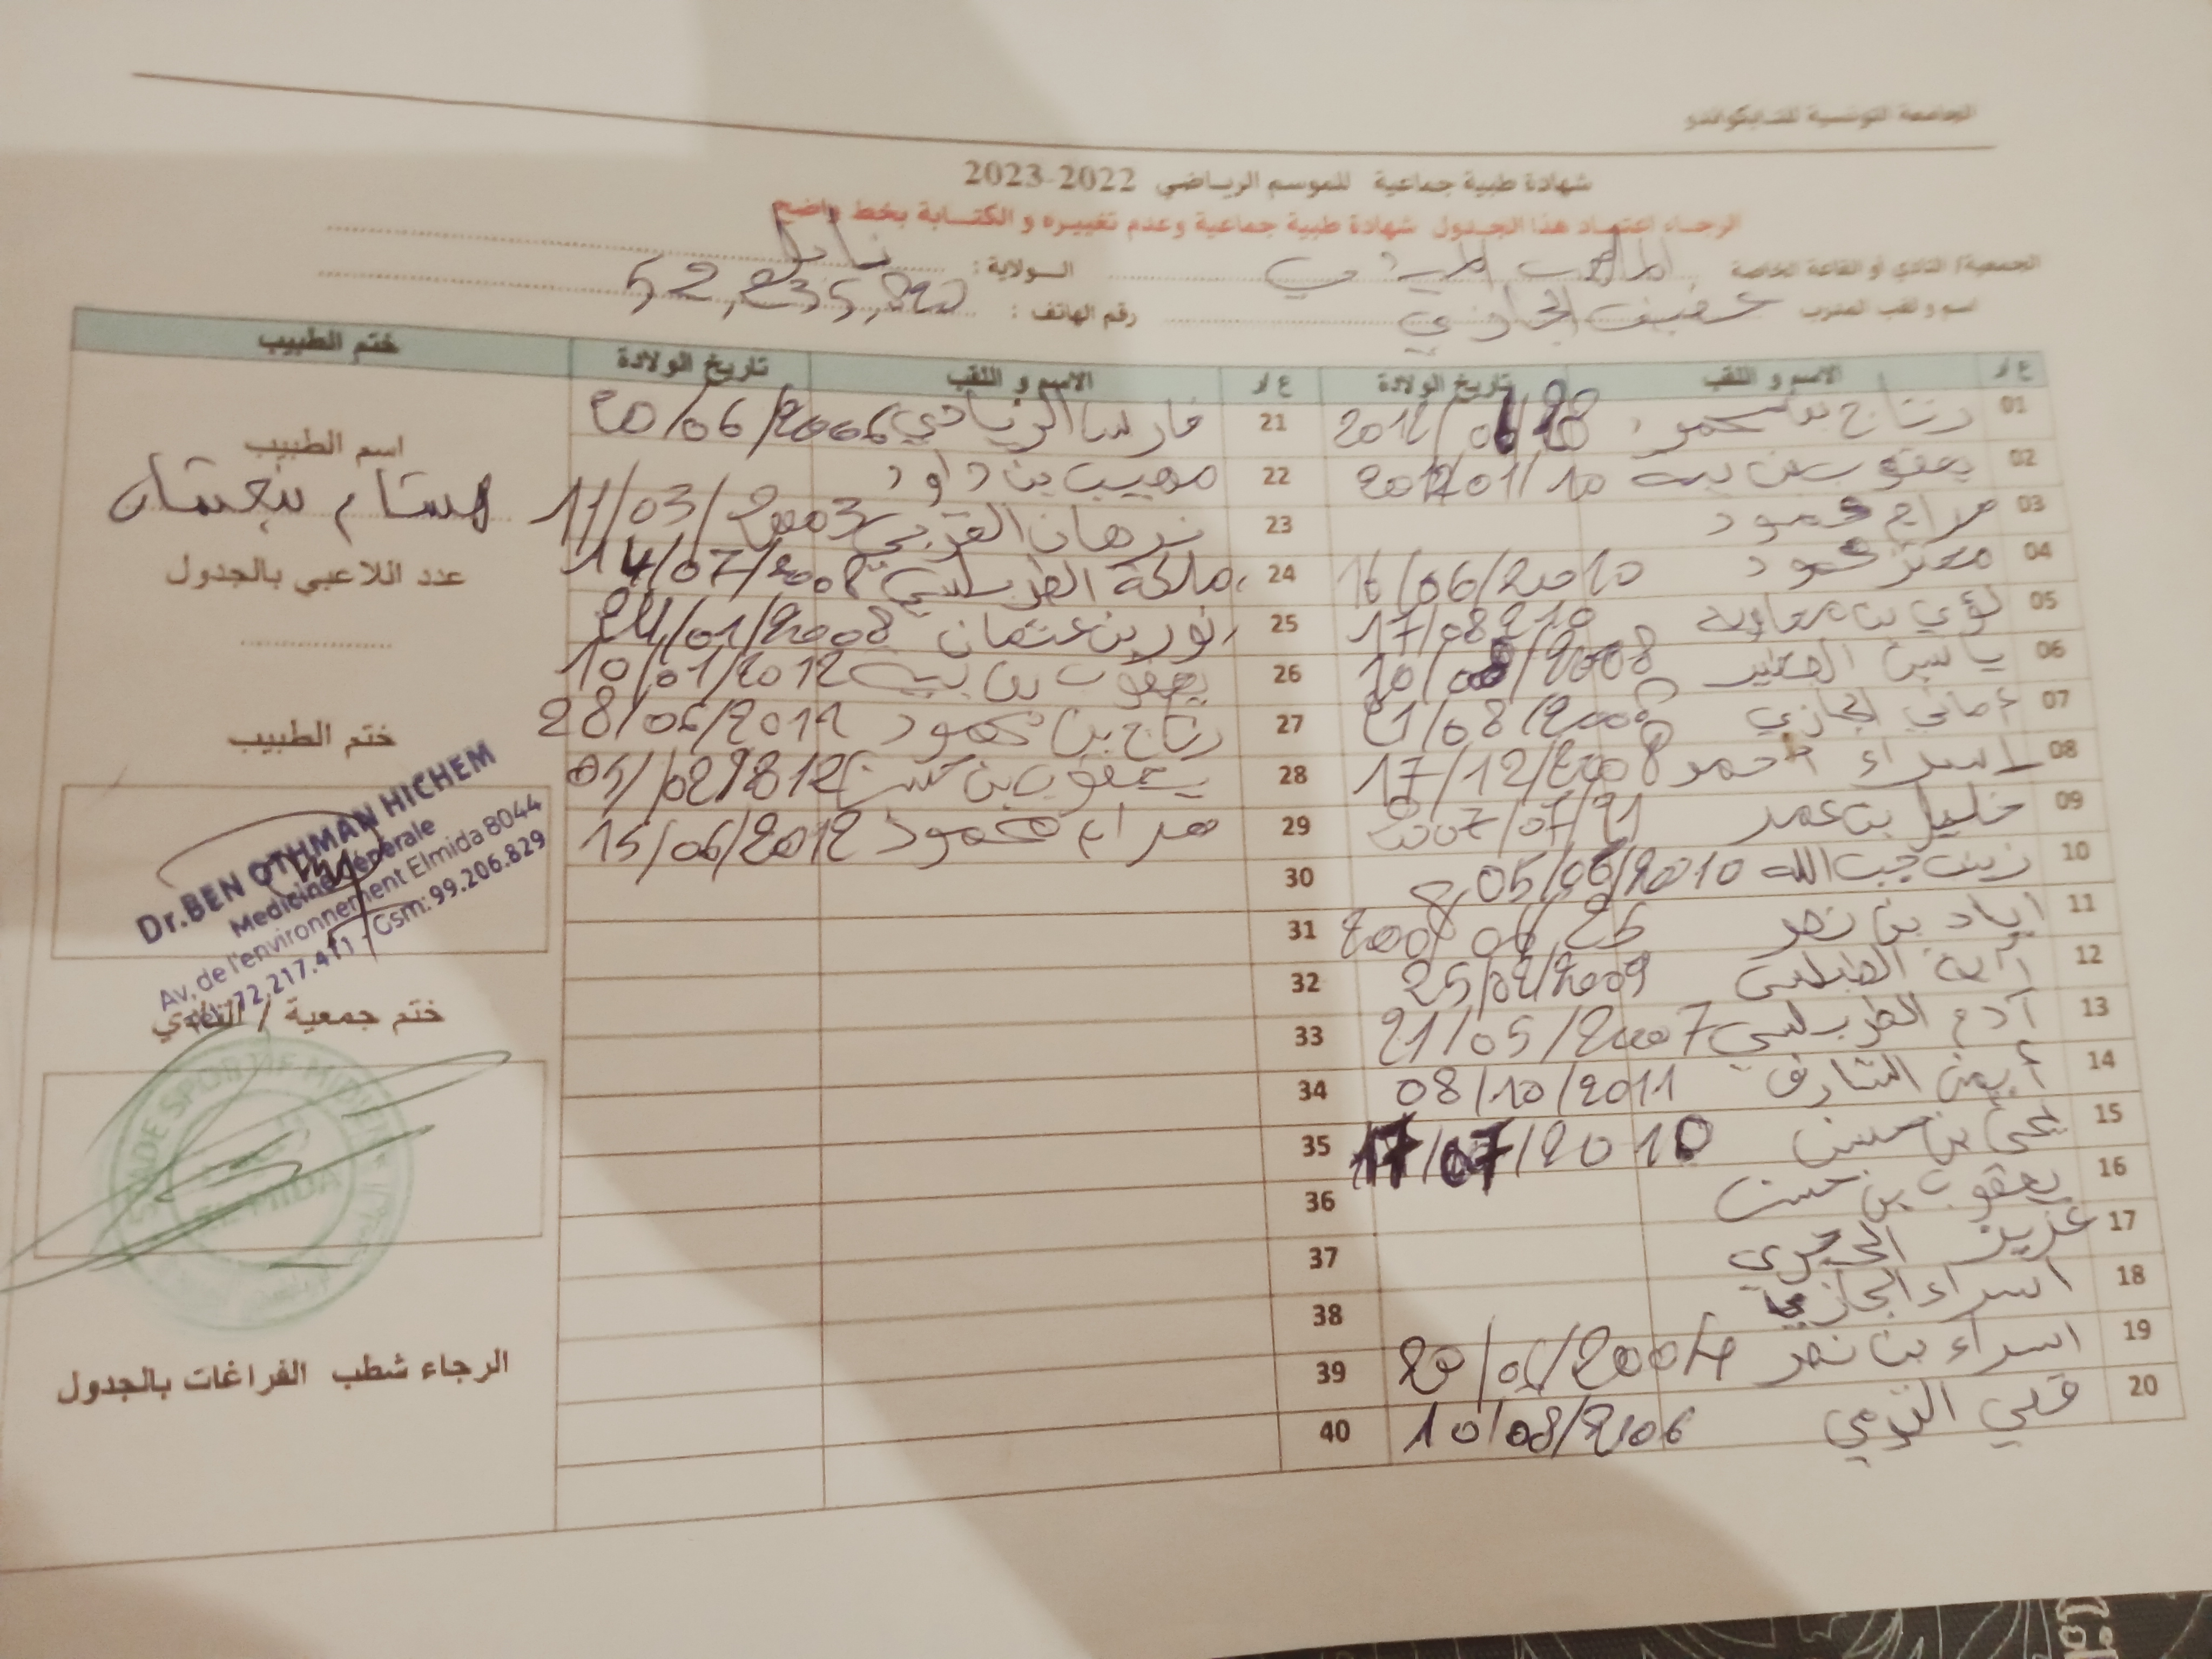 الجامعة التونسية للتايكواندو
شهادة طبية جماعية للموسم الرياضي 2022-2023
الرجاء اعتماد هذا الجدول شهادة طبية جماعية وعدم تغييره و الكتابة بخط واضح
الجمعية/ النادي أو القاعة الخاصة الملعب الميدي الولاية: نابل
اسم و لقب المدرب رقم الهاتف:
ع/ر الاسم و اللقب تاريخ الولادة ع/ر الاسم و اللقب تاريخ الولادة ختم الطبيب
01 رتاج بن محمود 21 فارس الزيادي 20/06/2006
02 يعقوب بن بيه 2012/01/10 22 مهيب بن داود
03 مرام محمود 23 نورهان القربي 11/03/2003
04 معتز محمود 16/06/2010 24 ملكة الطرابلسي 14/07/2008
05 لؤي بن معاوية 25 نور بن عثمان 24/01/2008
06 ياسين 26 يعقوب بن بيه 10/01/2012
07 أماني الجازي 21/08/2008 27 رتاج بن محمود 28/06/2012
08 اسراء احمد 17/12/2008 28 يعقوب بن حسن
09 خليل بن عمر 2007/07/21 29 مرام محمود 15/06/2012
10 زينب جب الله 05/06/2010 30
11 اياد بن نصر 31
12 آية 25/02/2009 32
13 آدم الطرابلسي 21/05/2007 33
14 أيمن الشارف 08/10/2011 34
15 يحي بن حسين 17/07/2010 35
16 يعقوب بن حسن 36
17 عزيز 37
18 اسراء الجازي 38
19 اسراء بن نصر 39
20 10/08/2006 40
اسم الطبيب
هشام بن عثمان
عدد اللاعبي بالجدول
ختم الطبيب
Dr.BEN OTHMAN HICHEM
Medicine Générale
Av. de l'environnement Elmida 8044
Tél: 72.217.411 - Gsm: 99.206.829
ختم جمعية / النادي
STADE SPORTIF MIDIEN
EL MIDA
الرجاء شطب الفراغات بالجدول